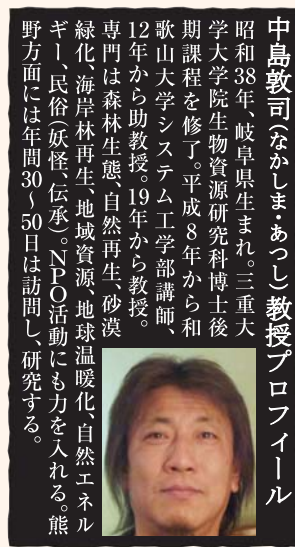 中島敦司（なかしま・あつし）教授プロフィール
昭和38年、岐阜県生まれ。三重大
学大学院生物資源研究科博士後
期課程を修了。平成８年から和
歌山大学システム工学部講師、
12年から助教授。19年から教授。
専門は森林生態、自然再生、砂漠
緑化、海岸林再生、地域資源、地球温暖化、自然エネル
ギー、民俗（妖怪、伝承）。ＮＰＯ活動にも力を入れる。熊
野方面には年間30〜50日は訪問し、研究する。